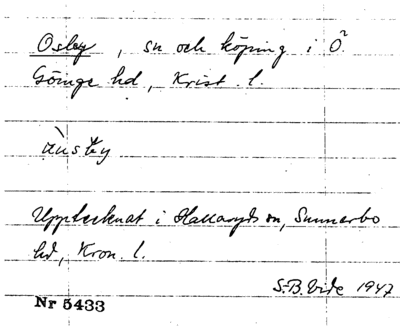 Osby, sn och köping i Ö.
Göinge hd, Krist. l.
Upptecknat i Hallaryds sn, Sunnerbo
hd, Kron. l.
S.B. Vide 1947
Nr 5433